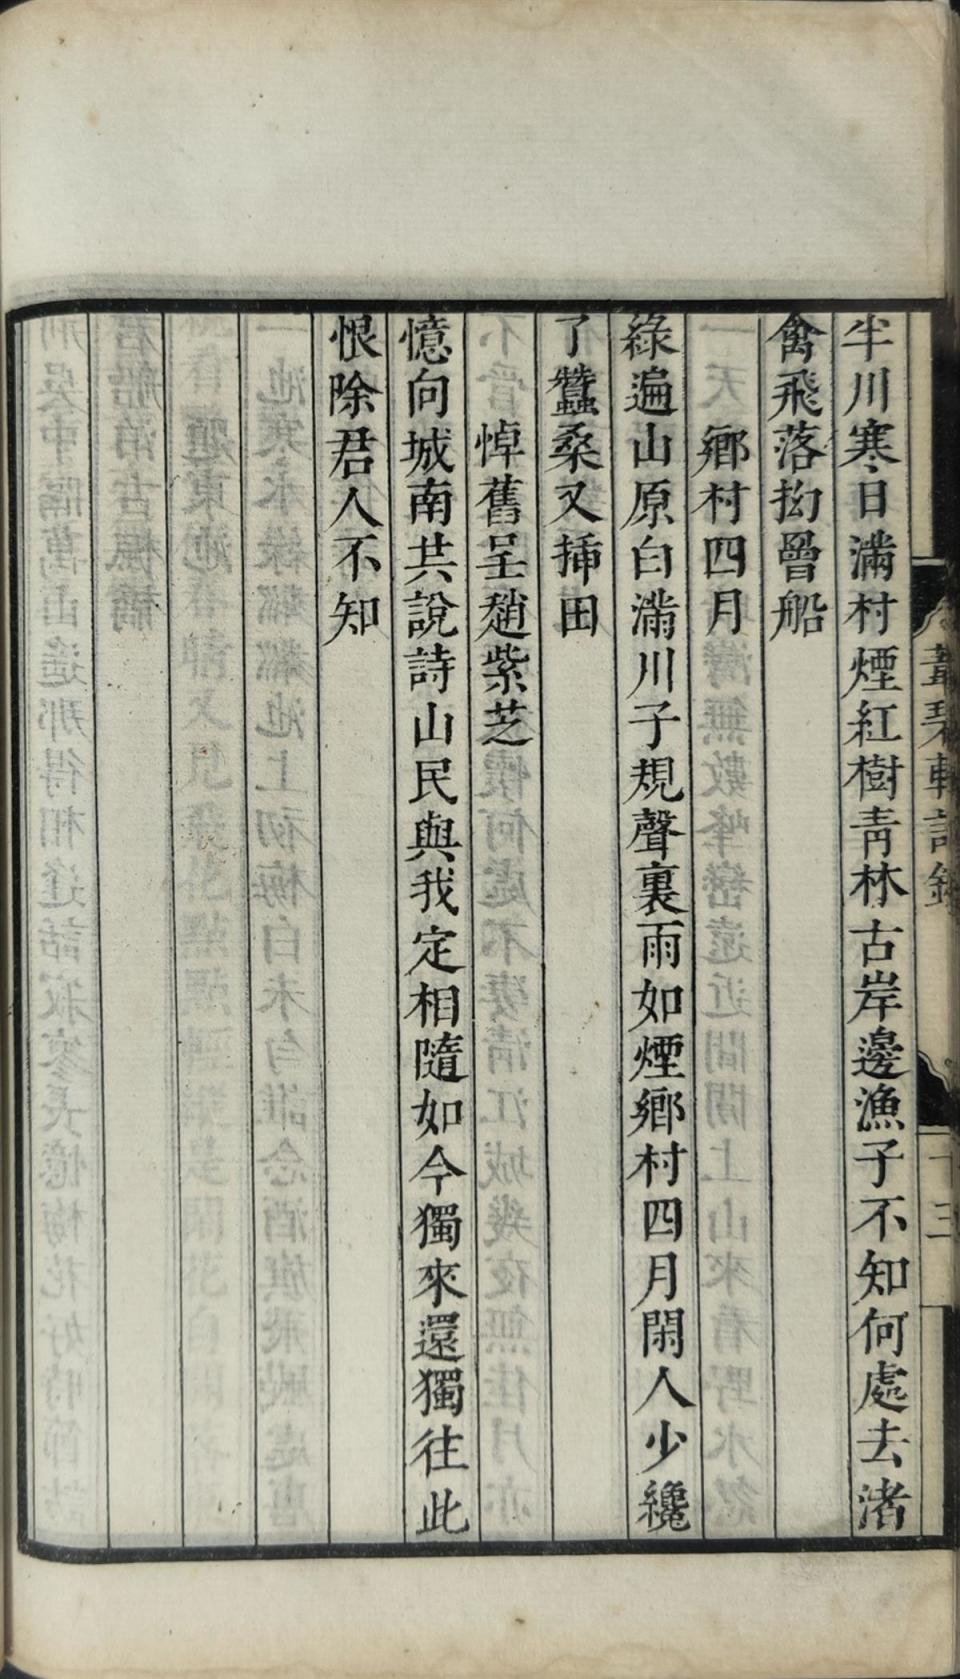 半川寒日滿村煙紅樹青林古岸邊漁子不知何處去渚
禽飛落拗罾船
鄉村四月
綠遍山原白滿川子規聲裏雨如煙鄉村四月閑人少纔
了蠶桑又揷田
悼舊呈趙紫芝
憶向城南共說詩山民與我定相隨如今獨來還獨往此
恨除君人不知
葦碧軒詩鈔
十三